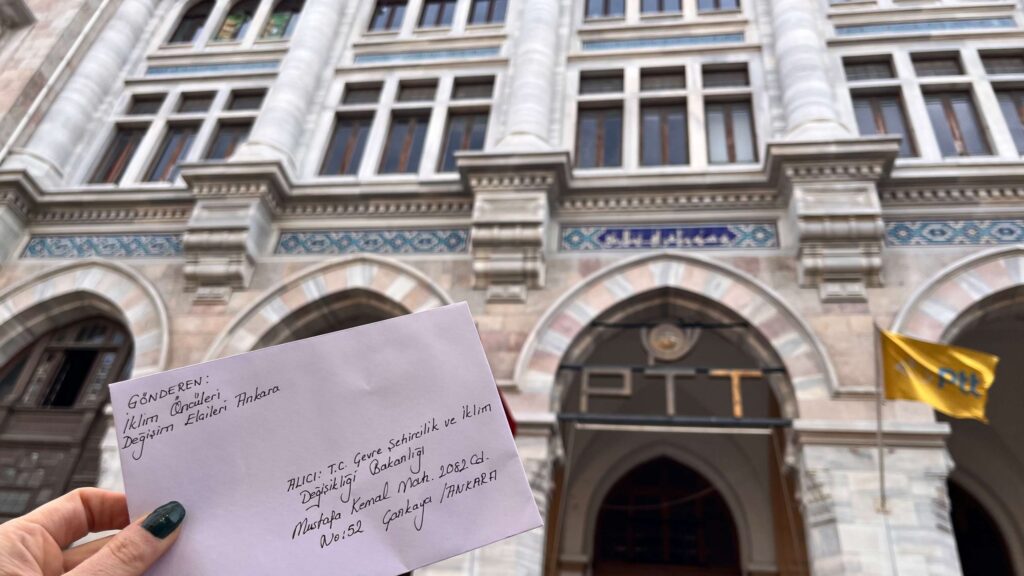 GÖNDEREN:
İklim Öncüleri
Değişim Elçileri Ankara
ALICI: T.C. Çevre Şehircilik ve İklim
Değişikliği Bakanlığı
Mustafa Kemal Mah. 2082 Cd.
No:52 Çankaya /ANKARA
PTT
Ptt